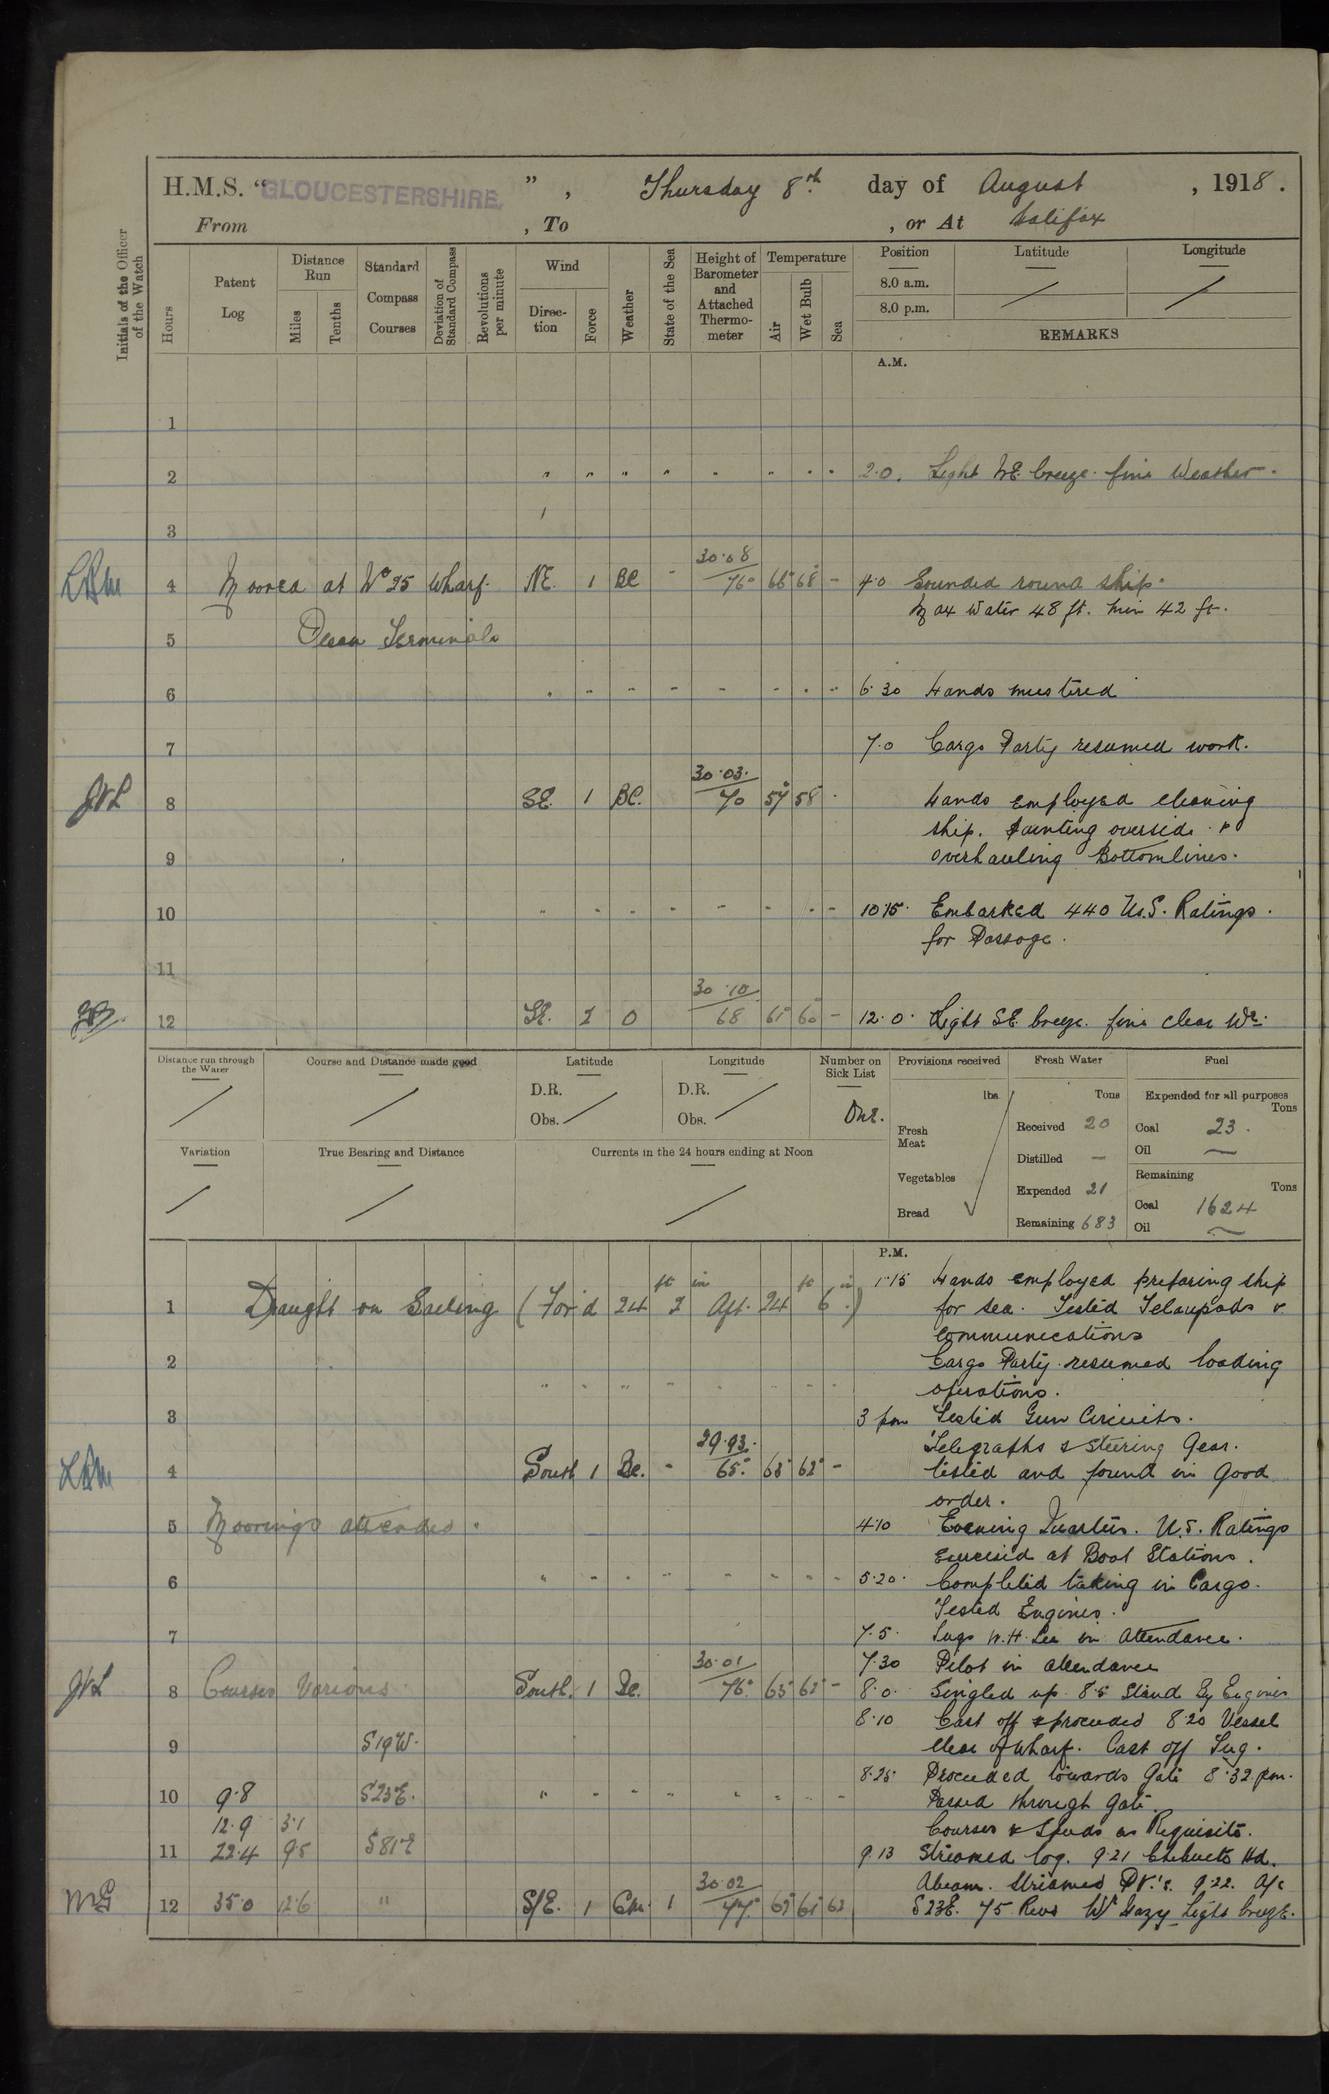 H.M.S. "GLOUCESTERSHIRE," , Thursday 8th day of August , 1918.
From , To , or At Halifax
Initials of the Officer of the Watch
Hours
Patent Log
Distance Run
Miles
Tenths
Standard Compass Courses
Deviation of Standard Compass
Revolutions per minute
Wind
Direction
Force
Weather
State of the Sea
Height of Barometer and Attached Thermometer
Temperature
Air
Wet Bulb
Sea
Position
Latitude
Longitude
8.0 a.m.
8.0 p.m.
REMARKS
A.M.
1
2 " " " " " " " " 2.0. Light NE breeze. fine Weather.
3
30.08
4 Moored at No 25 Wharf. NE. 1 BC - 76° 68 - 4.0 Sounded round ship.
Max Water 48 ft. Min 42 ft.
5 Ocean Terminals
6 6.30 Hands mustered
7 7.0 Cargo Party resumed work.
30.03.
JVL 8 SE. 1 BC. 70 59 58 Hands employed cleaning
ship. Painting overside &
9 overhauling Bottomlines.
10 10.15. Embarked 440 U.S. Ratings
for Passage.
11
30.10
12 SE. 2 O 68 60 - 12.0. Light SE breeze. fine clear Wr.
Distance run through the Water
Course and Distance made good
Latitude
D.R.
Obs.
Longitude
D.R.
Obs.
Number on Sick List
One.
Provisions received
lbs
Fresh Meat
Vegetables
Bread
Fresh Water
Tons
Received 20
Distilled —
Expended 21
Remaining 683
Fuel
Expended for all purposes
Tons
Coal 23.
Oil —
Remaining
Tons
Coal 1624
Oil —
Variation
True Bearing and Distance
Currents in the 24 hours ending at Noon
P.M.
1.15 Hands employed preparing ship
1 Draught on Sailing (For'd 24 ft 2 in Aft. 24 ft 6 in.) for sea. Tested Telaupads &
communications
2 Cargo Party resumed loading
operations.
3 3 pm Tested Gun Circuits.
29.93. Telegraphs & Steering Gear.
4 South 1 Bc. - 65° 63° 62° - tested and found in good
order.
5 Moorings attended. 4.10 Evening Quarters. U.S. Ratings
exercised at Boat Stations.
6 5.20. Completed taking in Cargo.
Tested Engines.
7 7.5. Tugs W.H. Lee in attendance.
30.01 7.30 Pilot in attendance
JVL 8 Courses Various. South. 1 Bc. 76° 65° 62° - 8.0. Singled up. 8.5 Stand By Engines
8.10 Cast off & proceeded 8.20 Vessel
9 S19W. clear of wharf. Cast off Tug.
8.25. Proceeded towards Gate 8.32 pm.
10 9.8 S23E. Passed through gate.
12.9 3.1 Courses & Speeds as Requisite.
11 22.4 9.5 S81E 9.13 Streamed log. 9.21 Chebucto Hd.
30.02 Abeam. Streamed PV.'s. 9.22. A/c
12 35.0 12.6 " S/E. 1 Cm. 1 77° 63° 61° 62 S23E. 75 Revs Wr Hazy Light breeze.